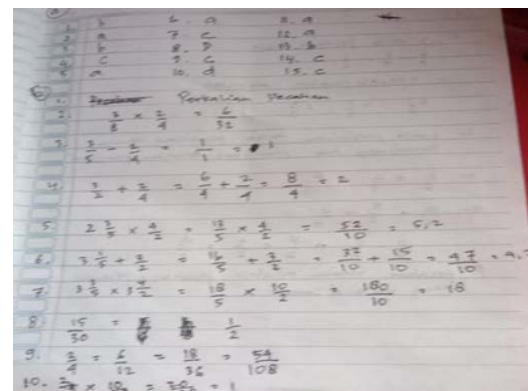 1. b 6. a 11. a
2. a 7. c 12. a
3. b 8. b 13. b
4. c 9. c 14. c
5. a 10. d 15. c
1. Perkalian Pecahan
2. 3/8 x 2/4 = 6/32
3. 3/5 - 2/4 = 1/1 = 1
4. 3/2 + 2/4 = 6/4 + 2/4 = 8/4 = 2
5. 2 3/5 x 4/2 = 13/5 x 4/2 = 52/10 = 5,2
6. 3 1/5 + 3/2 = 16/5 + 3/2 = 32/10 + 15/10 = 47/10 =
7. 3 3/5 x 3 4/2 = 18/5 x 10/2 = 180/10 = 18
8. 15/30 = 1/2
9. 3/4 = 6/12 = 18/36 = 54/108
10. = 1